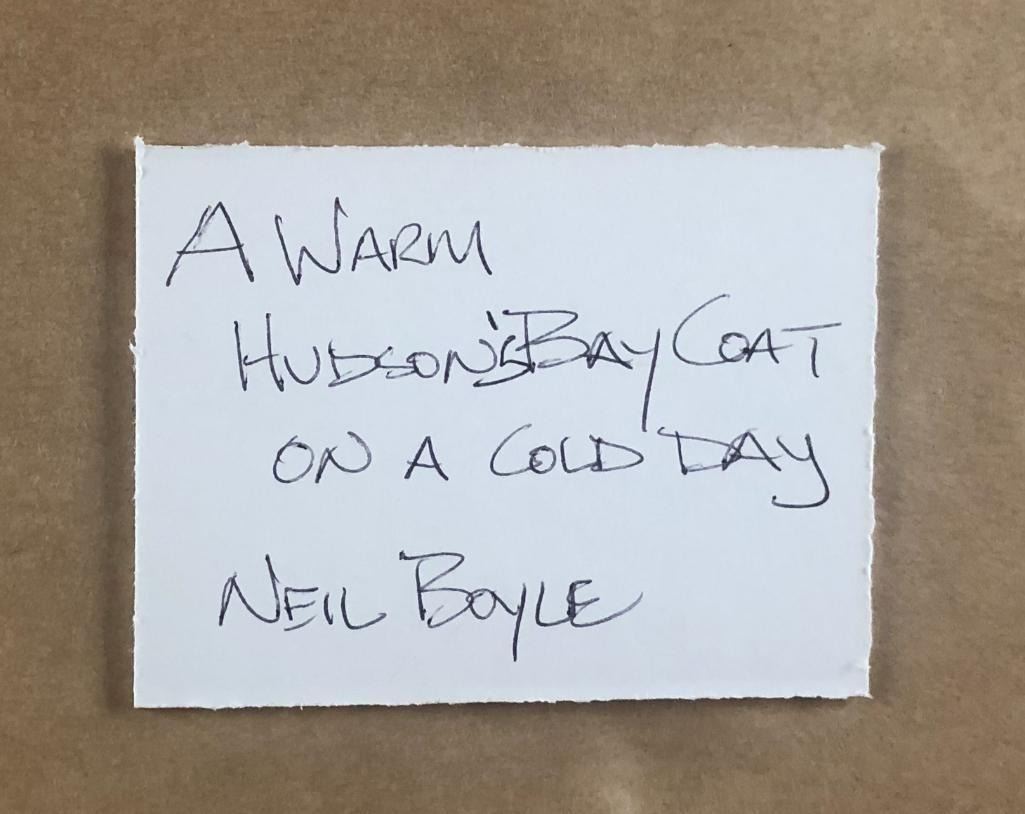 A WARM
HUDSON'S BAY COAT
ON A COLD DAY
NEIL BOYLE